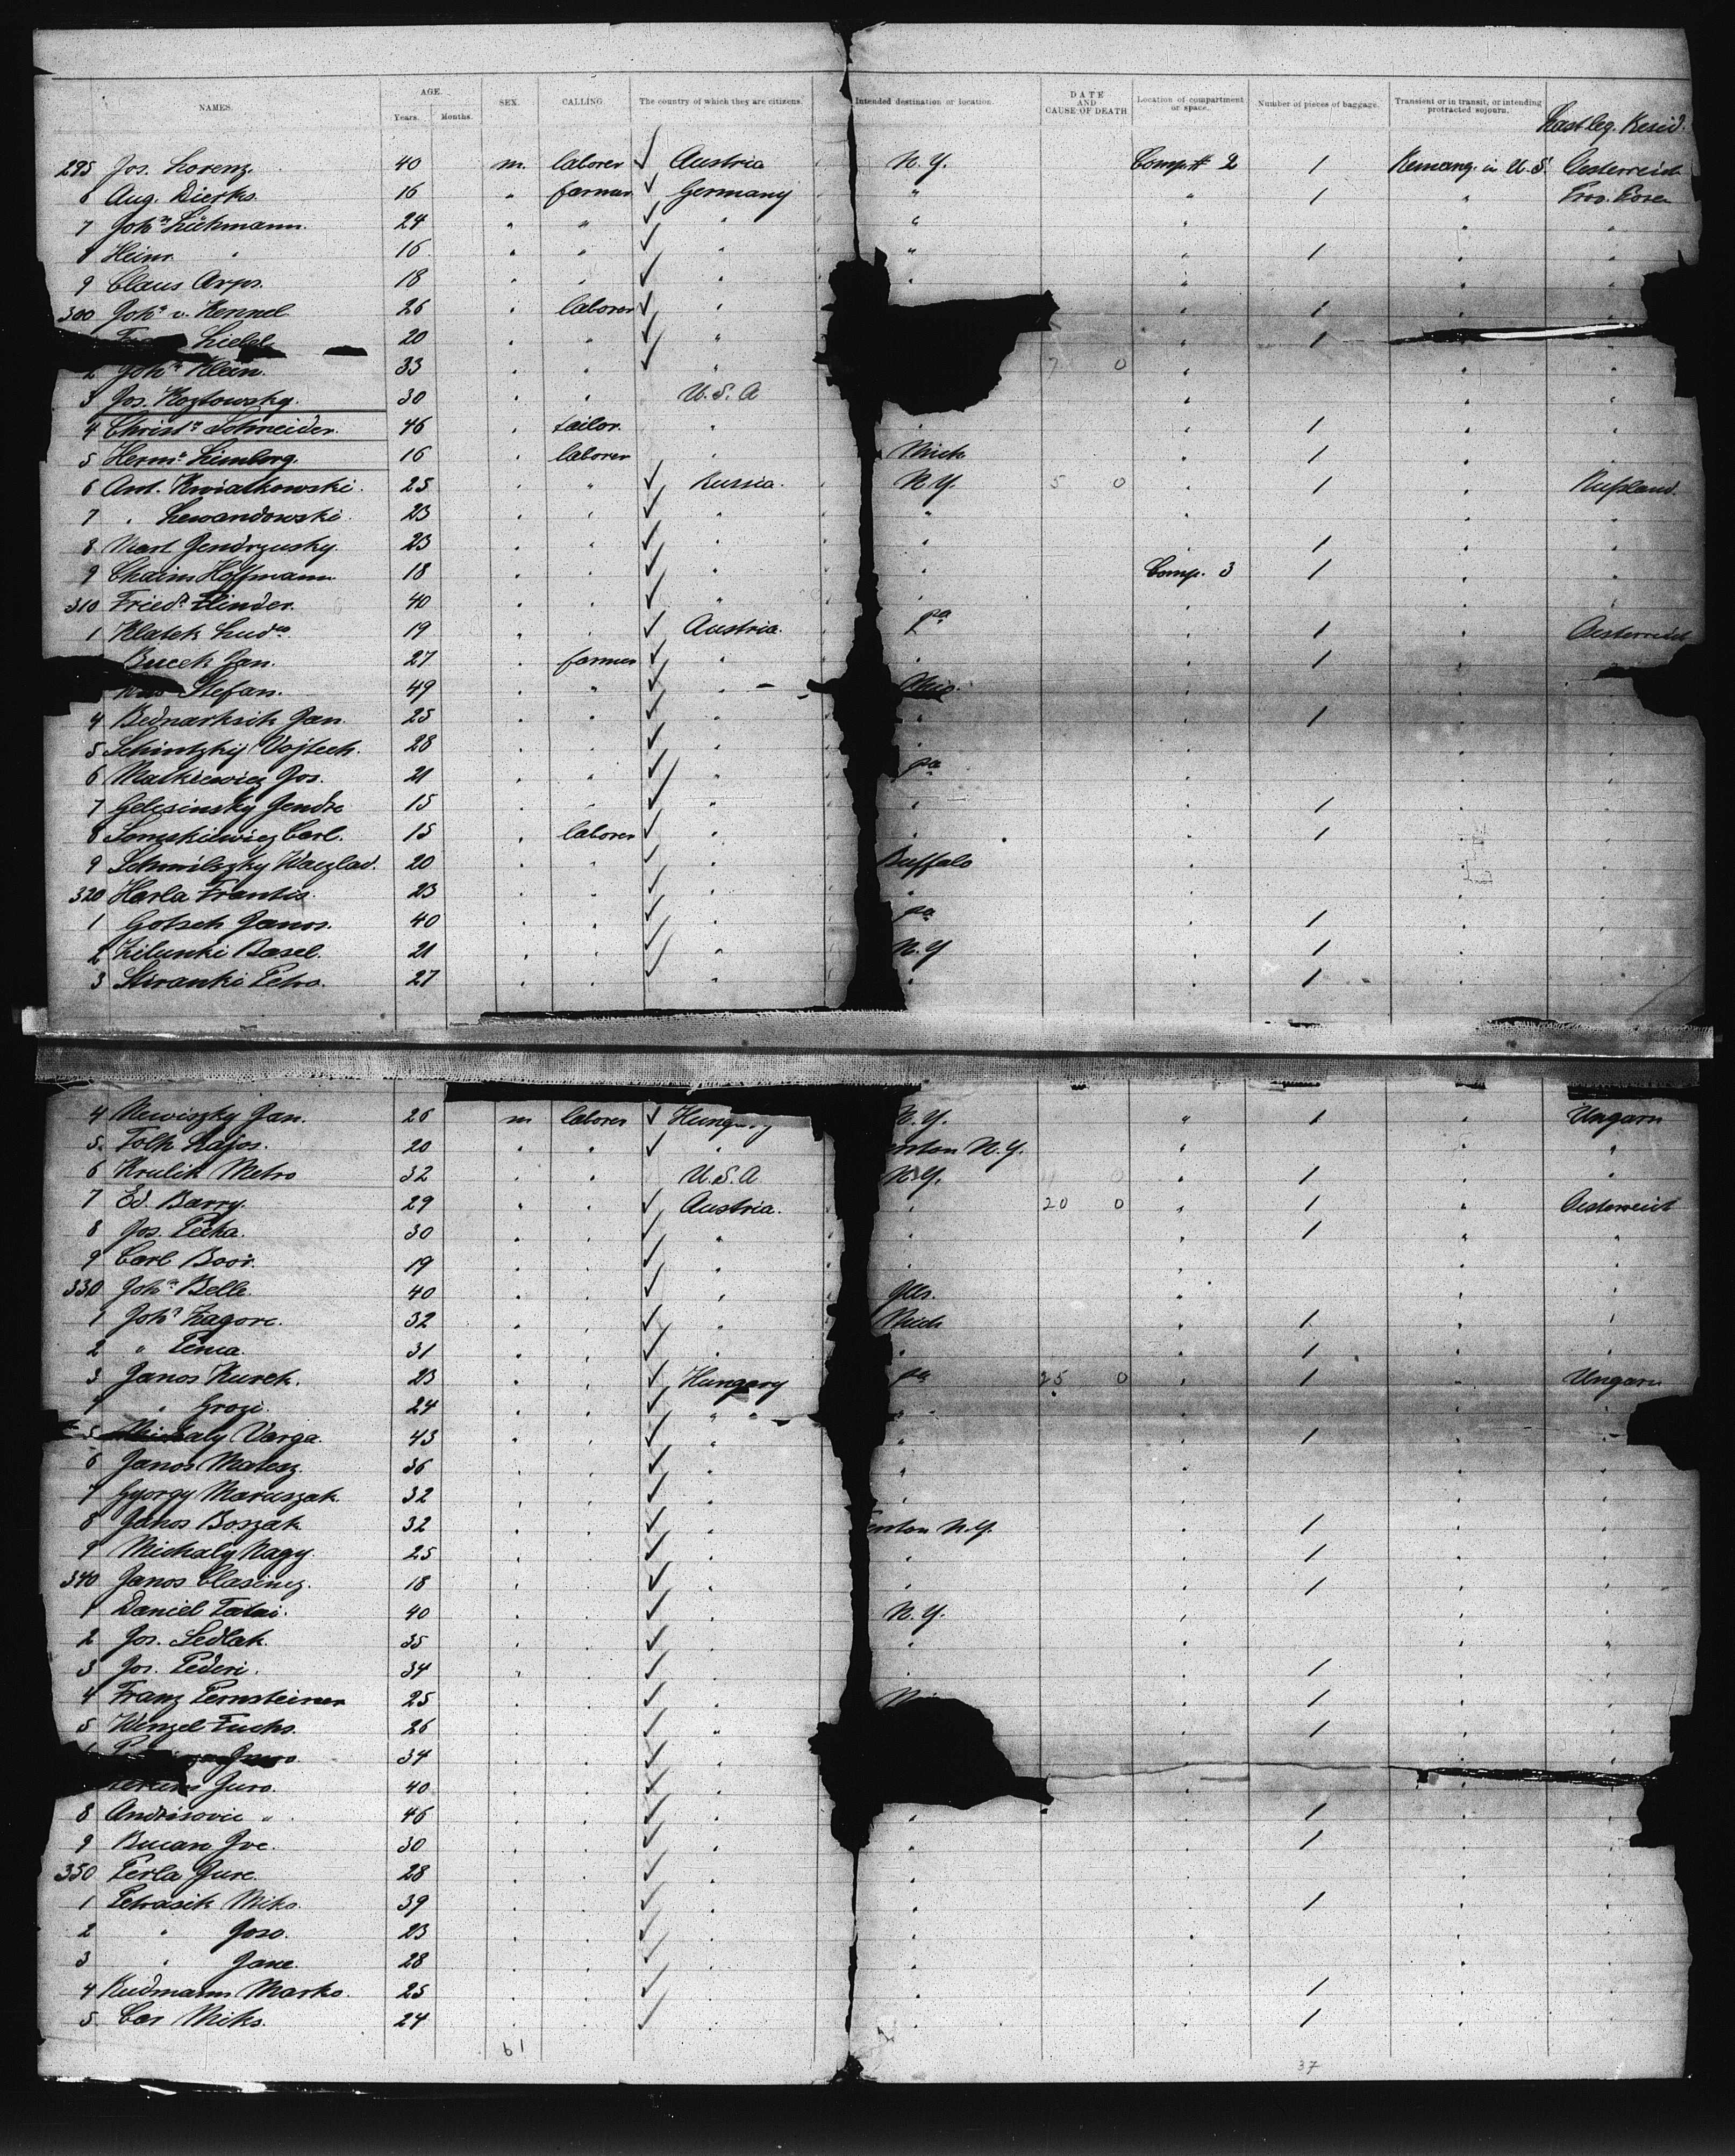 NAMES. AGE. Years. Months. SEX. CALLING. The country of which they are citizens. Intended destination or location. DATE AND CAUSE OF DEATH Location of compartment or space. Number of pieces of baggage. Transient or in transit, or intending protracted sojourn. Last leg. Resid.
295 Jos. Lorenz. 40 m. laborer ✓ Austria N.Y. Comp. # 2 1 Remang. in U.S. Oesterreich
6 Aug. Dierks. 16 " farmer ✓ Germany " " 1 " Prov. Posen
7 Johs Lühmann. 24 " " ✓ " " " " "
8 Heinr. " 16 " " ✓ " " " 1 " "
9 Claus Arps. 18 " " ✓ " " " " "
300 Johs v. Kennel 26 " laborer ✓ " " 1 " "
Liebl 20 " " ✓ " " 1 "
2 John Klein. 33 " " ✓ " 7 0 " " "
3 Jos. Kozlowsky. 30 " " U.S.A " " "
4 Christn Schneider. 46 " tailor. " " " 1 " "
5 Hermn Limberg. 16 " laborer " Mich " 1 " "
6 Ant. Kwiatkowski. 25 " " ✓ Russia. N.Y. 5 0 " 1 " Rußland.
7 " Lewandowski. 23 " " ✓ " " " " "
8 Mart. Jendrzusky. 23 " " ✓ " " " 1 " "
9 Chaim Hoffmann 18 " " ✓ " " Comp. 3 1 " "
310 Friedr Zlinder. 40 " " ✓ " " " " "
1 Klatek Ludw 19 " " ✓ Austria. Pa " 1 " Oesterreich
Bucek Jan. 27 " farmer ✓ " " " 1 " "
Stefan. 49 " " ✓ " " " "
4 Bednarksik Jan. 25 " " ✓ " " " 1 " "
5 Schintzkij Vojtech. 28 " " ✓ " " " " "
6 Matkiewicz Jos. 21 " " ✓ " pa " " "
7 Gelesinsky Jendro 15 " " ✓ " " " 1 " "
8 Somskiewicz Carl. 15 " laborer ✓ " " " 1 " "
9 Schmilszky Waczlad. 20 " " ✓ " Buffalo " " "
320 Harla Frantis. 23 " " ✓ " " " " "
1 Gotsch Janos. 40 " " ✓ " pa " 1 " "
2 Zilunki Basel. 21 " " ✓ " N.Y " 1 " "
3 Stiranko Petro. 27 " " ✓ " " " 1 " "
4 Newiszky Jan. 26 m laborer ✓ Hungary N.Y. " 1 " Ungarn
5. Folk Lajos. 20 " " ✓ " N.Y. " " "
6 Krulik Metro 32 " " U.S.A N.Y. 0 " 1 " "
7 Ed. Barry. 29 " " ✓ Austria. " 20 0 " 1 " Oesterreich
8 Jos. Pecka. 30 " " ✓ " " " 1 " "
9 Carl Boor. 19 " " ✓ " " " " "
330 John Belle. 40 " " ✓ " Ills. " " "
1 Johs Zagorc. 32 " " ✓ " Mich " 1 " "
2 " Penca. 31 " " ✓ " " " 1 " "
3 Janos Kurek. 23 " " ✓ Hungary pa 25 0 " 1 " Ungarn
4 " Grozi. 24 " " ✓ " " " " "
5 Michaly Varga. 43 " " ✓ " " " 1 " "
6 Janos Matesz. 36 " " ✓ " " " " "
7 Gyorgy Maruszak. 32 " " ✓ " " " " "
8 Janos Boszak 32 " " ✓ " N.Y. " 1 " "
9 Michaly Nagy. 25 " " ✓ " " " 1 " "
340 Janos Clasincz. 18 " " ✓ " " " 1 " "
1 Daniel Tatai. 40 " " ✓ " N.Y. " " "
2 Jos. Sedlak. 35 " " ✓ " " " " "
3 Jos. Pederi. 34 " " ✓ " " " 1 " "
4 Franz Pernsteiner 25 " " ✓ " " 1 " "
5 Wenzel Fuchs. 26 " " ✓ " " 1 " "
34 " " ✓ " " " "
Juro. 40 " " ✓ " " " "
8 Andrisovic " 46 " " ✓ " " " 1 " "
9 Bucan Ive. 30 " " ✓ " " " 1 " "
350 Perla Jure. 28 " " ✓ " " " " "
1 Petrasik Miko. 39 " " ✓ " " " 1 " "
2 " Joso. 23 " " ✓ " " " " "
3 " Jane. 28 " " ✓ " " " " "
4 Rudmann Marko. 25 " " ✓ " " " 1 " "
5. Car Miko. 24 " " ✓ " " " 1 " "
61 37